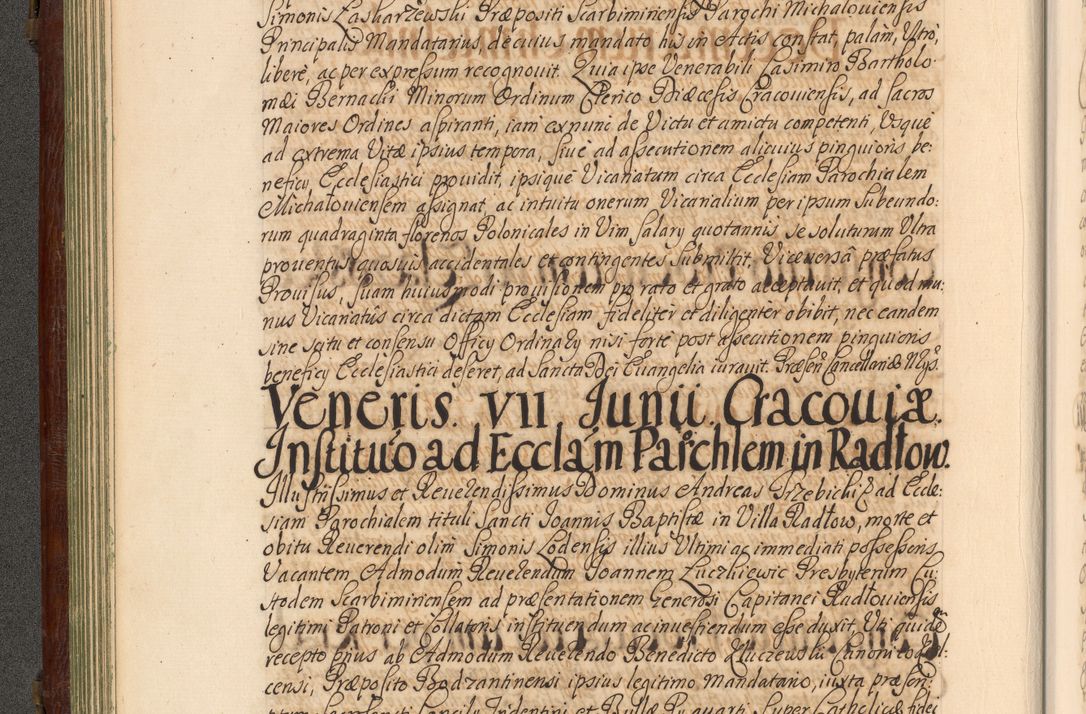 Simonis Laskarzewski Præpositi Scarbimiriensis Parochi Michalouiensis
Principalis Mandatarius, de cuius mandato his in Actis constat, palam, Ultro,
libere, ac per expressum recognouit. Quia ipse Venerabili Casimiro Bartholo:
mæi Bernacki Minorum Ordinum Clerico Diæcesis Cracouiensis, ad sacros
Maiores Ordines aspiranti, iam ex nunc de Victu et amictu competenti, Usque
ad extrema Vitæ ipsius tempora, siue ad assecutionem alicuius pinguioris be:
neficij Ecclesiastici prouidit, ipsique Vicariatum circa Ecclesiam Parochialem
Michałouiensem assignat, ac intuitu onerum Vicarialium per ipsum subeundo:
rum quadraginta florenos Polonicales in Vim Salarij quotannis se soluturum Ultra
prouentus quosuis accidentales et contingentes submittit. Viceversâ præfatus
Prouisus, suam huiusmodi prouisionem pro rato et grato acceptauit, et quod mu:
nus Vicariatus circa dictam Ecclesiam fideliter et diligenter obibit, nec eandem
sine scitu et consensu Officij Ordinarij nisi forte post assecutionem pinguioris
beneficij Ecclesiastici deseret, ad Sancta Dei Euangelia iurauit. Præsen Cancellariæ
Veneris. VII Junij. Cracouiæ.
Institutio ad Ecclam Parchlem in Radłow.
Illustrissimus et Reuerendissimus Dominus Andreas Trzebicki &c ad Eccle:
siam Parochialem tituli Sancti Joannis Baptistæ in Villa Radłow, morte et
obitu Reuerendi olim Simonis Lodensis illius Ultimi ac immediati possessoris
Vacantem Admodum Reuerendum Joannem Łuczkiewic Presbyterum Cu:
stodem Scarbimiriensem ad præsentationem Generosi Capitanei Radłouiensis
legitimi Patroni et Collatoris instituendum ac inuestiendum esse duxit. Uti quidẽ
recepto prius ab Admodum Reuerendo Benedicto Kuczewski Canonico
censi, Præposito Bodzantinensi ipsius legitimo Mandatario, iuxta præscri:
ptum Sacrosancti Concilij Tridentini et Bullæ Pij quarti super Catholicæ fidei